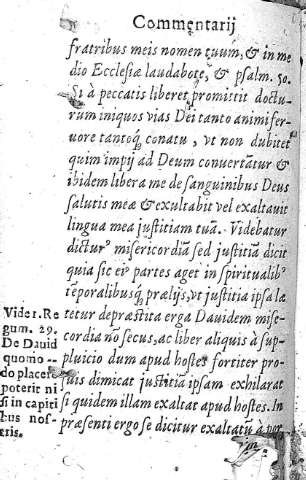 Commentarij
fratribus meis nomen tuum, & in me
dio Ecclesiæ laudabo te, & psalm. 50.
Si à peccatis liberet promittit doctu-
rum iniquos vias Dei tanto animi fer-
uore tantoq; conatu, vt non dubitet
quim impij ad Deum conuertātur &
ibidem libera me de sanguinibus Deus
salutis meæ & exultabit vel exaltauit
lingua mea justitiam tuā. Videbatur
dictur' misericordiā sed justitiā dicit
quia sic eiꝰ partes aget in spiritualibꝰ
tēporalibusq; prælijs, vt justitia ipsa læ
tetur de præstita erga Dauidem mise-
cordia nō secus, ac liber aliquis à sup-
pluicio dum apud hostes fortiter pro
suis dimicat justitiā ipsam exhilarat
si quidem illam exaltat apud hostes. In
præsenti ergo se dicitur exaltatū à
Vide 1. Re
gum. 29.
De Dauid
quomo--
do placere
poterit ni
si in capiti
bus nos-
tris.